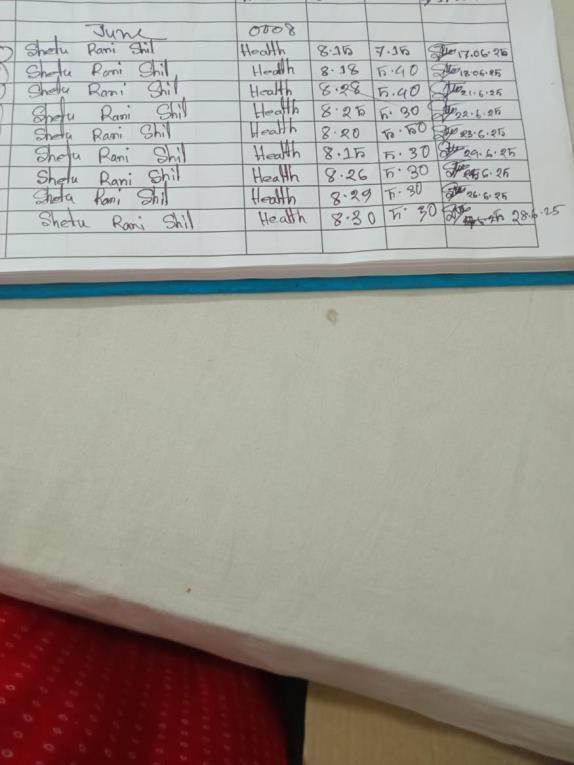 June 0008
Shetu Rani Shil Health 8.15 7.15 17.06.25
Shetu Rani Shil Health 8.18 5.40 18.06.25
Shetu Rani Shil Health 8.28 5.40 21.6.25
Shetu Rani Shil Health 8.25 5.30 22.6.25
Shetu Rani Shil Health 8.20 5.50 23.6.25
Shetu Rani Shil Health 8.15 5.30 24.6.25
Shetu Rani Shil Health 8.26 5.30 6.25
Shetu Rani Shil Health 8.29 5.30 26.6.25
Shetu Rani Shil Health 8.30 5.30 28.6.25